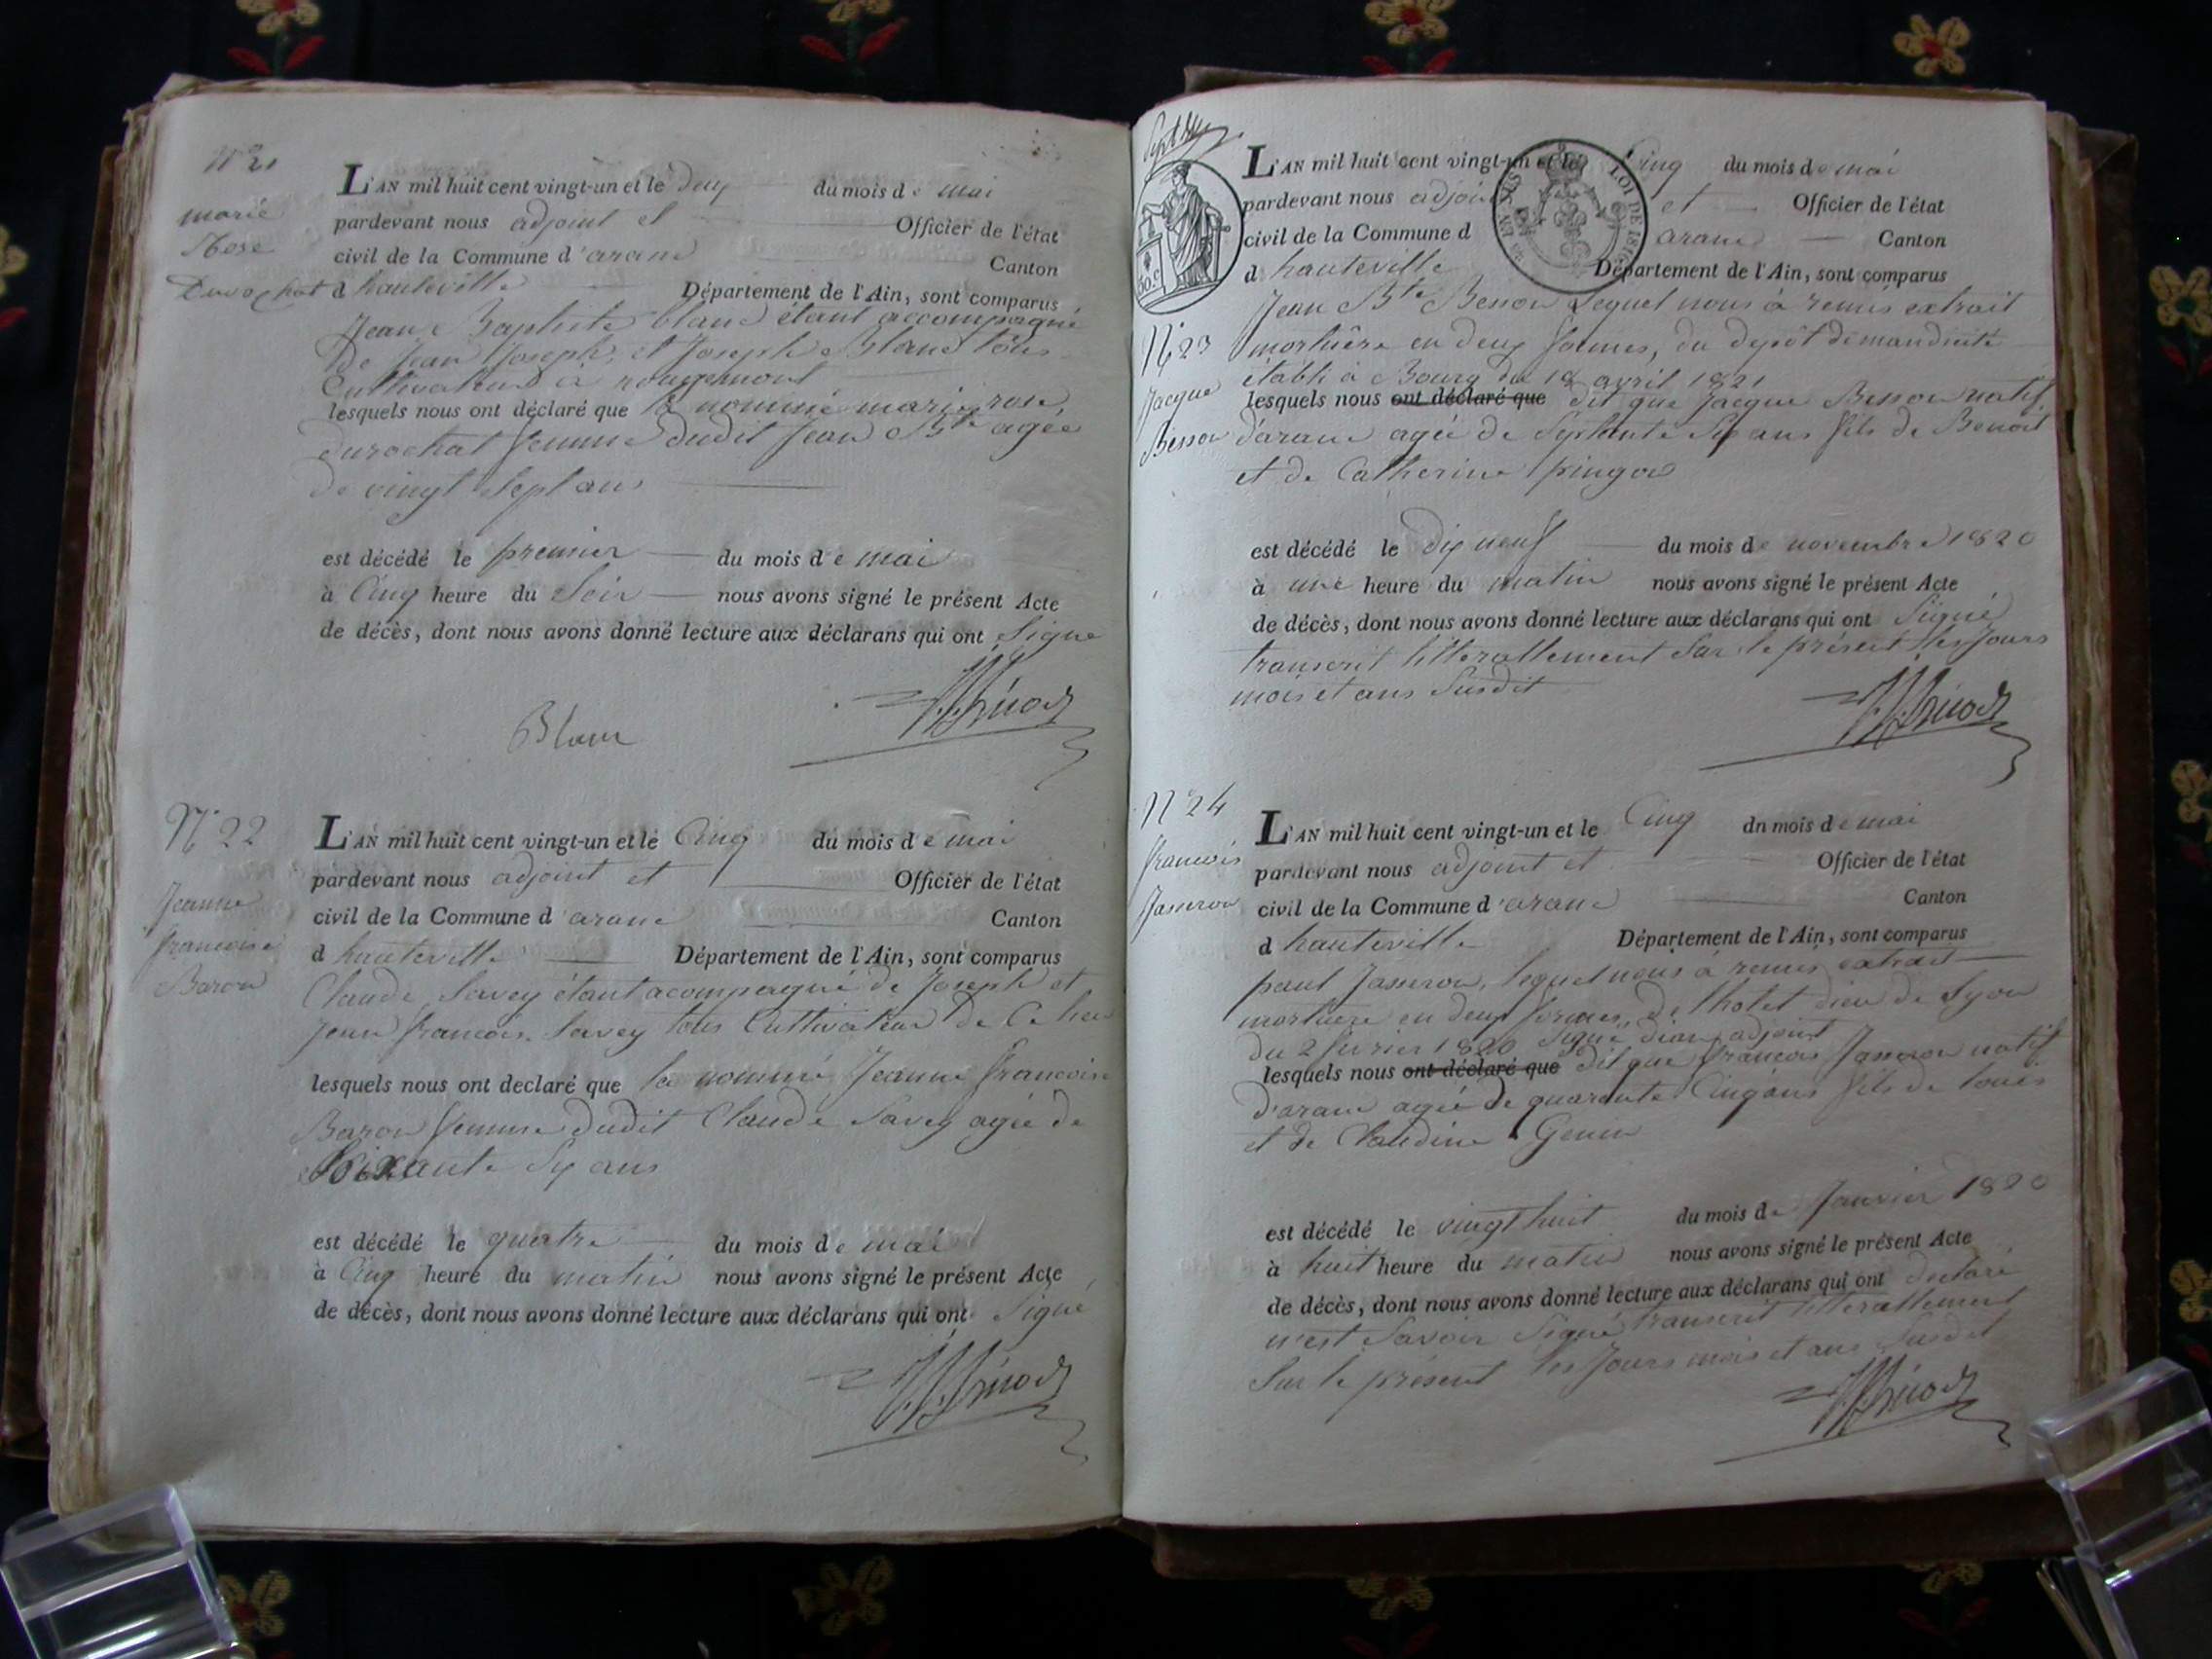 N° 21
marie
Rose
Durochat
L'AN mil huit cent vingt-un et le deux du mois de mai
pardevant nous adjoint et Officier de l'état
civil de la Commune d'aranc Canton
d hauteville Département de l'Ain, sont comparus
Jean Baptiste blanc étant accompagné
de Jean Joseph et Joseph Blanc tous
Cultivateurs à rougemont
lesquels nous ont déclaré que la nommé marie rose
durochat femme dudit Jean Bte agée
de vingt Sept ans
est décédé le premier du mois de mai
à Cinq heure du Soir nous avons signé le présent Acte
de décès, dont nous avons donné lecture aux déclarans qui ont Signé
Blanc
N° 22
Jeanne
francoise
Baron
L'AN mil huit cent vingt-un et le Cinq du mois de mai
pardevant nous adjoint et Officier de l'état
civil de la Commune d'aranc Canton
d hauteville Département de l'Ain, sont comparus
Claude Savey étant acompagné de Joseph et
Jean francois Savey tous Cultivateur de Ce lieu
lesquels nous ont declaré que la nommé Jeanne francoise
Baron femme dudit Claude Savey agée de
Soixante Six ans
est décédé le quatre du mois de mai
à Cinq heure du matin nous avons signé le présent Acte
de décès, dont nous avons donné lecture aux déclarans qui ont Signé
50 c
LOI DE 1816
N° 23
Jacque
Besson
L'AN mil huit cent vingt-un et le Cinq du mois de mai
pardevant nous adjoint et Officier de l'état
civil de la Commune d aranc Canton
d hauteville Département de l'Ain, sont comparus
Jean Bte Besson Lequel nous à remis extrait
mortuère en deux formes, du depôt de mandicité
établi à Bourg du 18 avril 1821
lesquels nous ont déclaré que dit que Jacque Besson natif
d'aranc agée de Septante Six ans fils de Benoit
et de Catherine pingon
est décédé le dix neuf du mois de novembre 1820
à une heure du matin nous avons signé le présent Acte
de décès, dont nous avons donné lecture aux déclarans qui ont Signé
transcrit litterallement Sur le présent les Jours
mois et ans Susdit
N° 24
francois
Jasseron
L'AN mil huit cent vingt-un et le Cinq dn mois de mai
pardevant nous adjoint et Officier de l'état
civil de la Commune d'aranc Canton
d hauteville Département de l'Ain, sont comparus
paul Jasseron, lequel nous à remis extrait
mortuère en deux formes, de lhotel dieu de Lyon
du 2 fevrier 1820 Signé adjoint
lesquels nous ont déclaré que dit que francois Jasseron natif
d'aranc agée de quarante Cinq ans fils de louis
et de Claudine Genin
est décédé le vingt huit du mois de Janvier 1820
à huit heure du matin nous avons signé le présent Acte
de décès, dont nous avons donné lecture aux déclarans qui ont declaré
n'est Savoir Signé transcrit litterallement
Sur le présent les Jours mois et ans Susdit